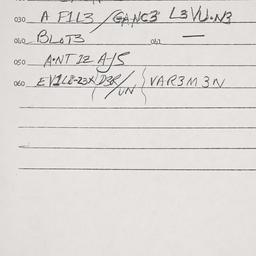 030 A F1L3 /GANC3 L3VU·N3
040 BLOT3 061 —
050 A·NT IZ A·J5
060 EV1L8-23X(D3R/UN) VAR3M3N